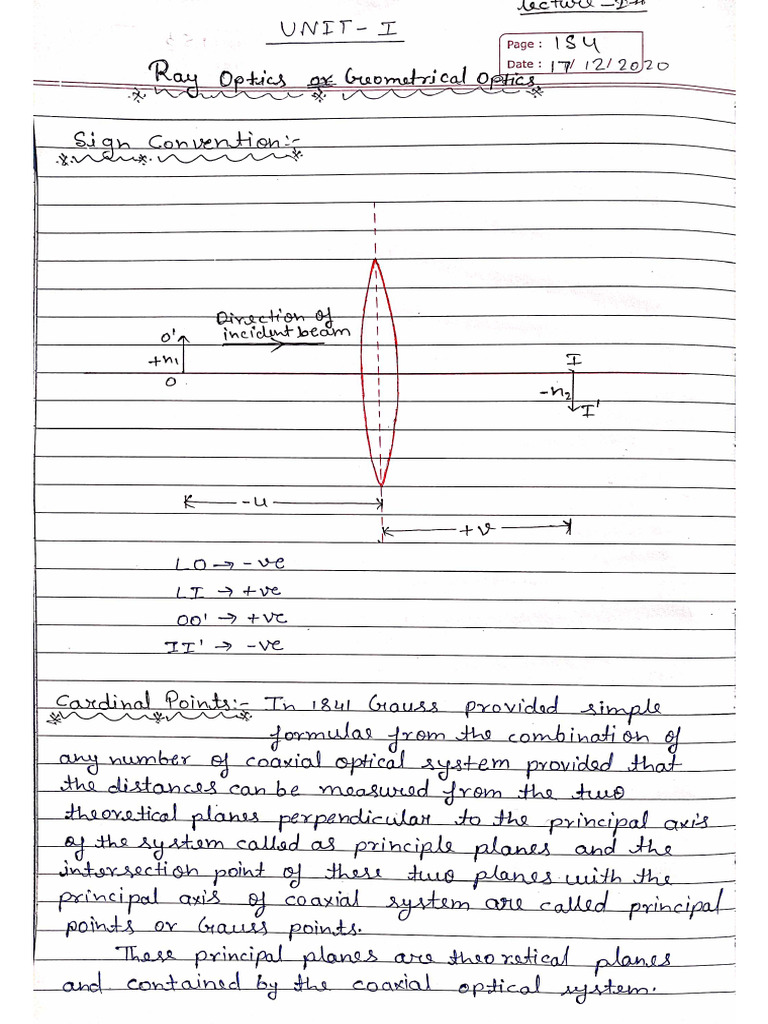 UNIT-I
Page : 154
Date : 17/12/2020
Ray Optics or Geometrical Optics
Sign Convention:-
Direction of
incident beam
O'
+h1
O
I
-h2
I'
-u
+v
LO → -ve
LI → +ve
OO' → +ve
II' → -ve
Cardinal Points:- In 1841 Gauss provided simple
formulae from the combination of
any number of coaxial optical system provided that
the distances can be measured from the two
theoretical planes perpendicular to the principal axis
of the system called as principle planes and the
intersection point of these two planes with the
principal axis of coaxial system are called principal
points or Gauss points.
These principal planes are theoretical planes
and contained by the coaxial optical system.